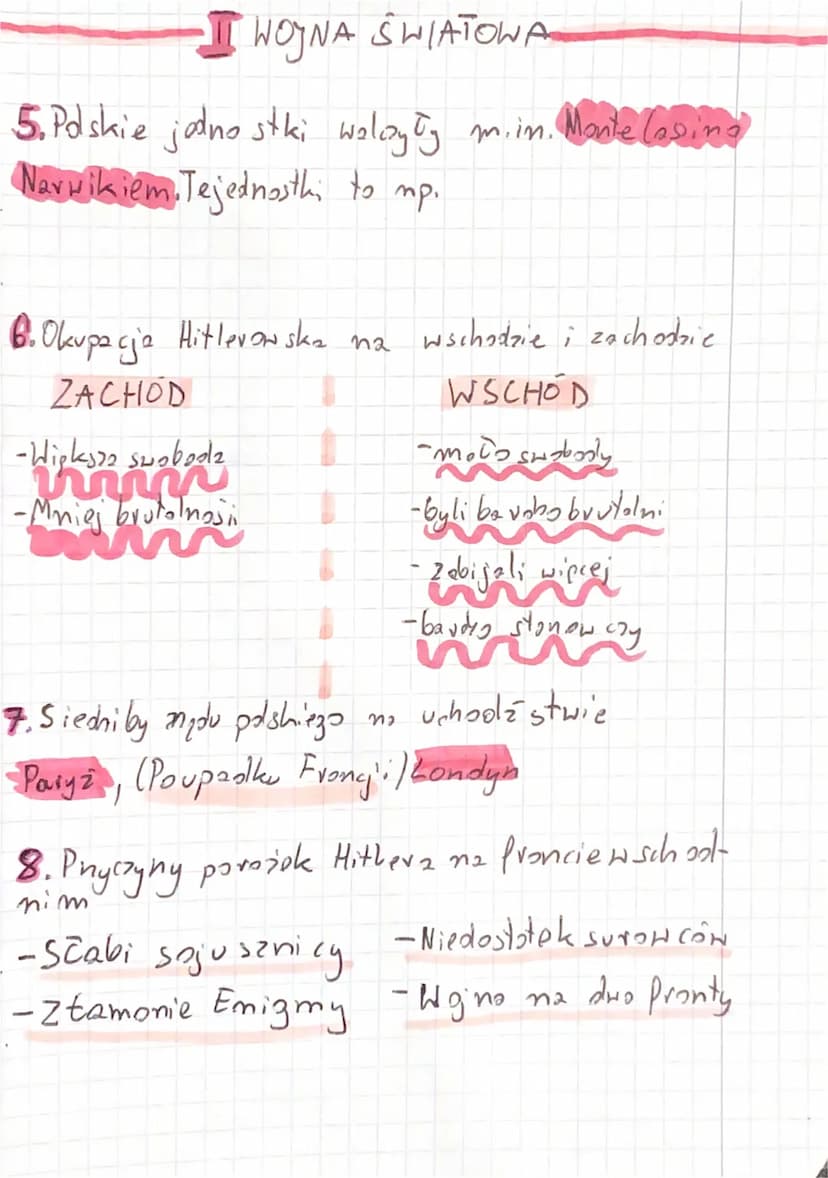 II WOJNA ŚWIATOWA
5. Polskie jednostki walczyły m.in. Monte Casino
Narwikiem. Te jednostki to np.
6. Okupacja Hitlerowska na wschodzie i zachodzie
ZACHÓD
- Większa swoboda
- Mniej brutalności
WSCHÓD
- mało swobody
- byli bardzo brutalni
- Zabijali więcej
- bardzo stanowczy
7. Siedziby rządu polskiego na uchodźstwie
Paryż, (Po upadku Francji) Londyn
8. Przyczyny porażek Hitlera na froncie wschod-
nim
- Słabi sojusznicy
- Złamanie Enigmy
- Niedostatek surowców
- Wojna na dwa fronty